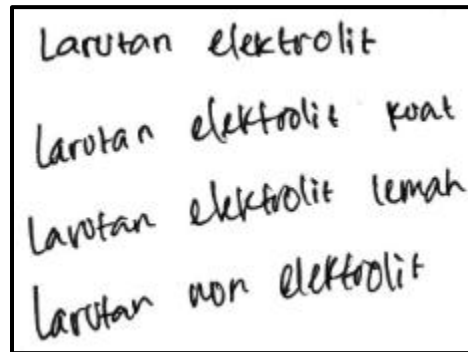 Larutan elektrolit
Larutan elektrolit kuat
Larutan elektrolit lemah
Larutan non elektrolit